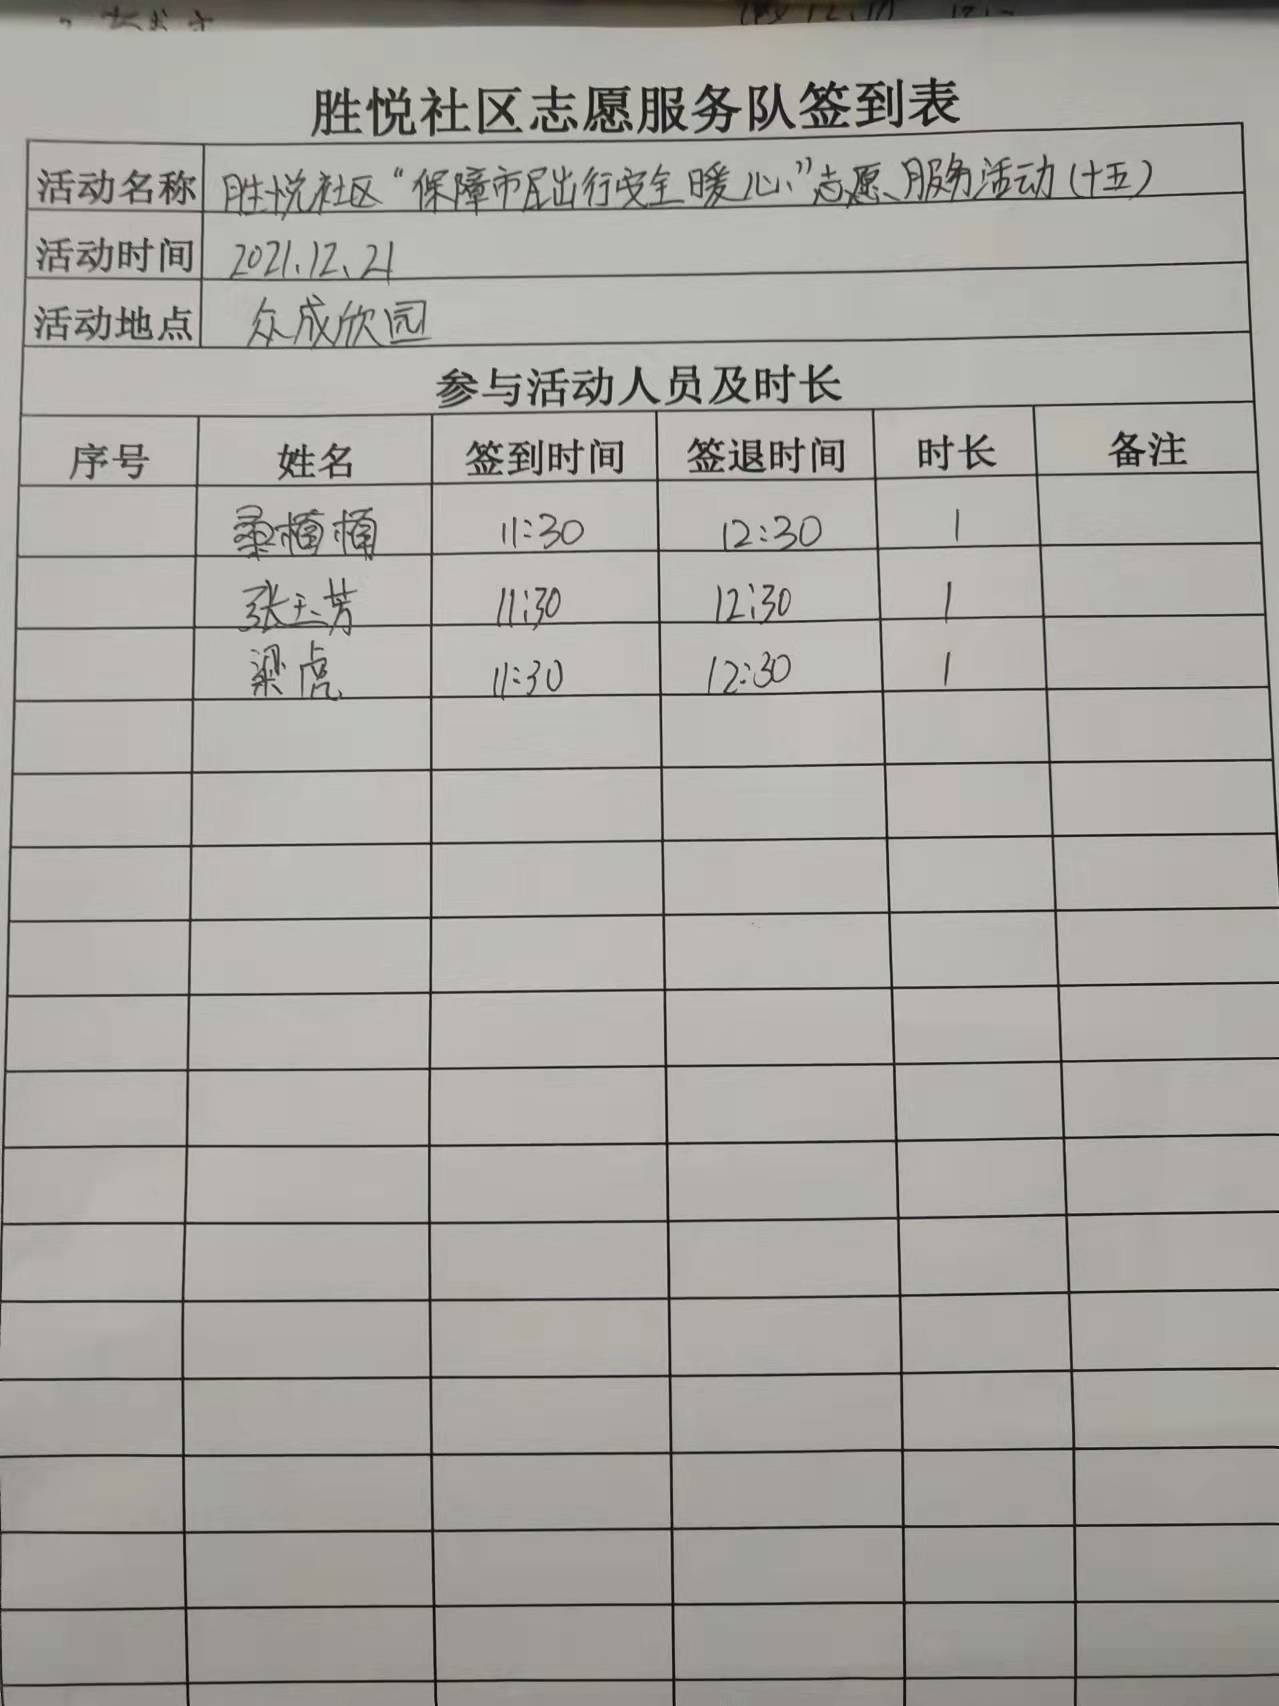 胜悦社区志愿服务队签到表
活动名称 胜悦社区“保障市民出行安全 暖心”志愿服务活动(十五)
活动时间 2021.12.21
活动地点 众成欣园
参与活动人员及时长
序号 姓名 签到时间 签退时间 时长 备注
桑楠楠 11:30 12:30 1
张玉芳 11:30 12:30 1
梁虎 11:30 12:30 1